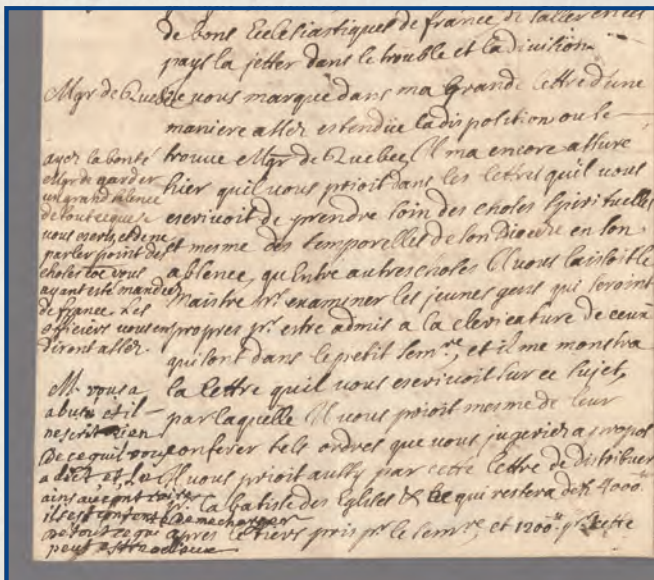 de bons Ecclesiastiques de france, di laller en ces
pays la jetter dans le trouble et la division.
Mgr de Quebec
Je vous marque dans ma grande lettre d'une
maniere assez estendüe la disposition ou se
trouve Mgr de Quebec, Il ma encore assuré
hier quil vous prioit dans les lettres quil vous
escrivoit de prendre soin des choses spirituelles
et mesme des temporelles de son Diocese en son
absence, qu'Entre autres choses Il vous laissoit le
Maistre pr. examiner les jeunes gens qui seroint
propres pr. estre admis a la clericature de ceux
qui sont dans le petit semre, et il me monstra
la lettre quil vous escrivoit sur ce sujet,
par laquelle Il vous prioit mesme de leur
conferer tels ordres que vous jugeriez a propos
Il vous prioit aussy par cette lettre de distribuer
pr. la batisse des Eglises & ce qui restera des 4000tt
apres le tiers pris pr. le semre, et 1200tt pr. cette
ayez la bonté
Mgr de garder
un grand silence
de tout ce que je
vous escris, et de ne
parler point des
choses vous
ayant esté mandées
de france. Les
officiers vous en
diront assez.
M. vous a
abusé et il
nescrit rien
De ce quil vous
a dict et, Le
ains au contraire
il est content De me charger
De tout ce que
peut estre odieux